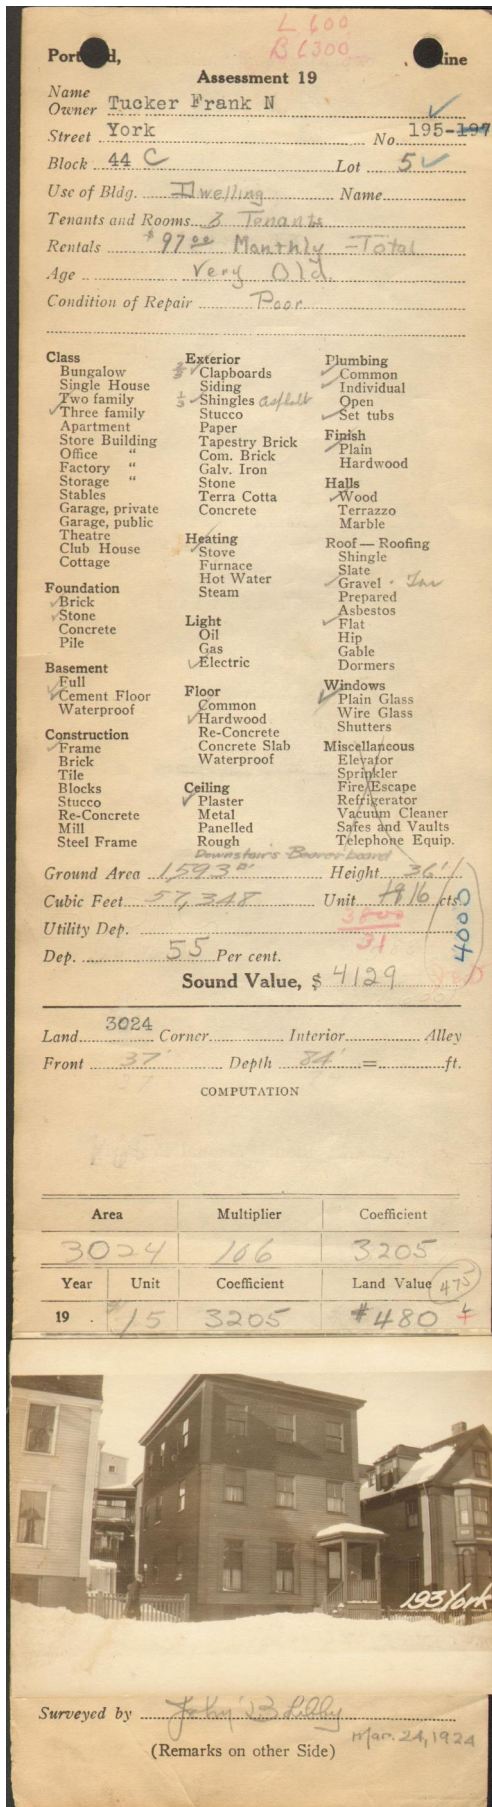 L 600
B 6300
Portland, Maine
Assessment 19
Name
Owner Tucker Frank N
Street York No. 195-197
Block 44 C Lot 5
Use of Bldg. Dwelling Name
Tenants and Rooms 3 Tenants
Rentals $97.00 Monthly - Total
Age Very Old.
Condition of Repair Poor
Class
Bungalow
Single House
Two family
Three family
Apartment
Store Building
Office "
Factory "
Storage "
Stables
Garage, private
Garage, public
Theatre
Club House
Cottage
Foundation
Brick
Stone
Concrete
Pile
Basement
Full
Cement Floor
Waterproof
Construction
Frame
Brick
Tile
Blocks
Stucco
Re-Concrete
Mill
Steel Frame
Exterior
2/3 Clapboards
Siding
1/3 Shingles Asphalt
Stucco
Paper
Tapestry Brick
Com. Brick
Galv. Iron
Stone
Terra Cotta
Concrete
Heating
Stove
Furnace
Hot Water
Steam
Light
Oil
Gas
Electric
Floor
Common
Hardwood
Re-Concrete
Concrete Slab
Waterproof
Ceiling
Plaster
Metal
Panelled
Rough
Downstair's Beaver board
Plumbing
Common
Individual
Open
Set tubs
Finish
Plain
Hardwood
Halls
Wood
Terrazzo
Marble
Roof — Roofing
Shingle
Slate
Gravel - Tar
Prepared
Asbestos
Flat
Hip
Gable
Dormers
Windows
Plain Glass
Wire Glass
Shutters
Miscellaneous
Elevator
Sprinkler
Fire Escape
Refrigerator
Vacuum Cleaner
Safes and Vaults
Telephone Equip.
Ground Area 1,593 Height 36'
Cubic Feet 57,348 Unit 16 cts.
Utility Dep. 3800
31
4000
Dep. 55 Per cent.
Sound Value, $ 4129
Land 3024 Corner Interior Alley
Front 37' Depth 84' = ft.
COMPUTATION
Area Multiplier Coefficient
3024 106 3205
Year Unit Coefficient Land Value 475
19 . 15 3205 $480
193 York
Surveyed by John B Libby
Mar. 24, 1924
(Remarks on other Side)